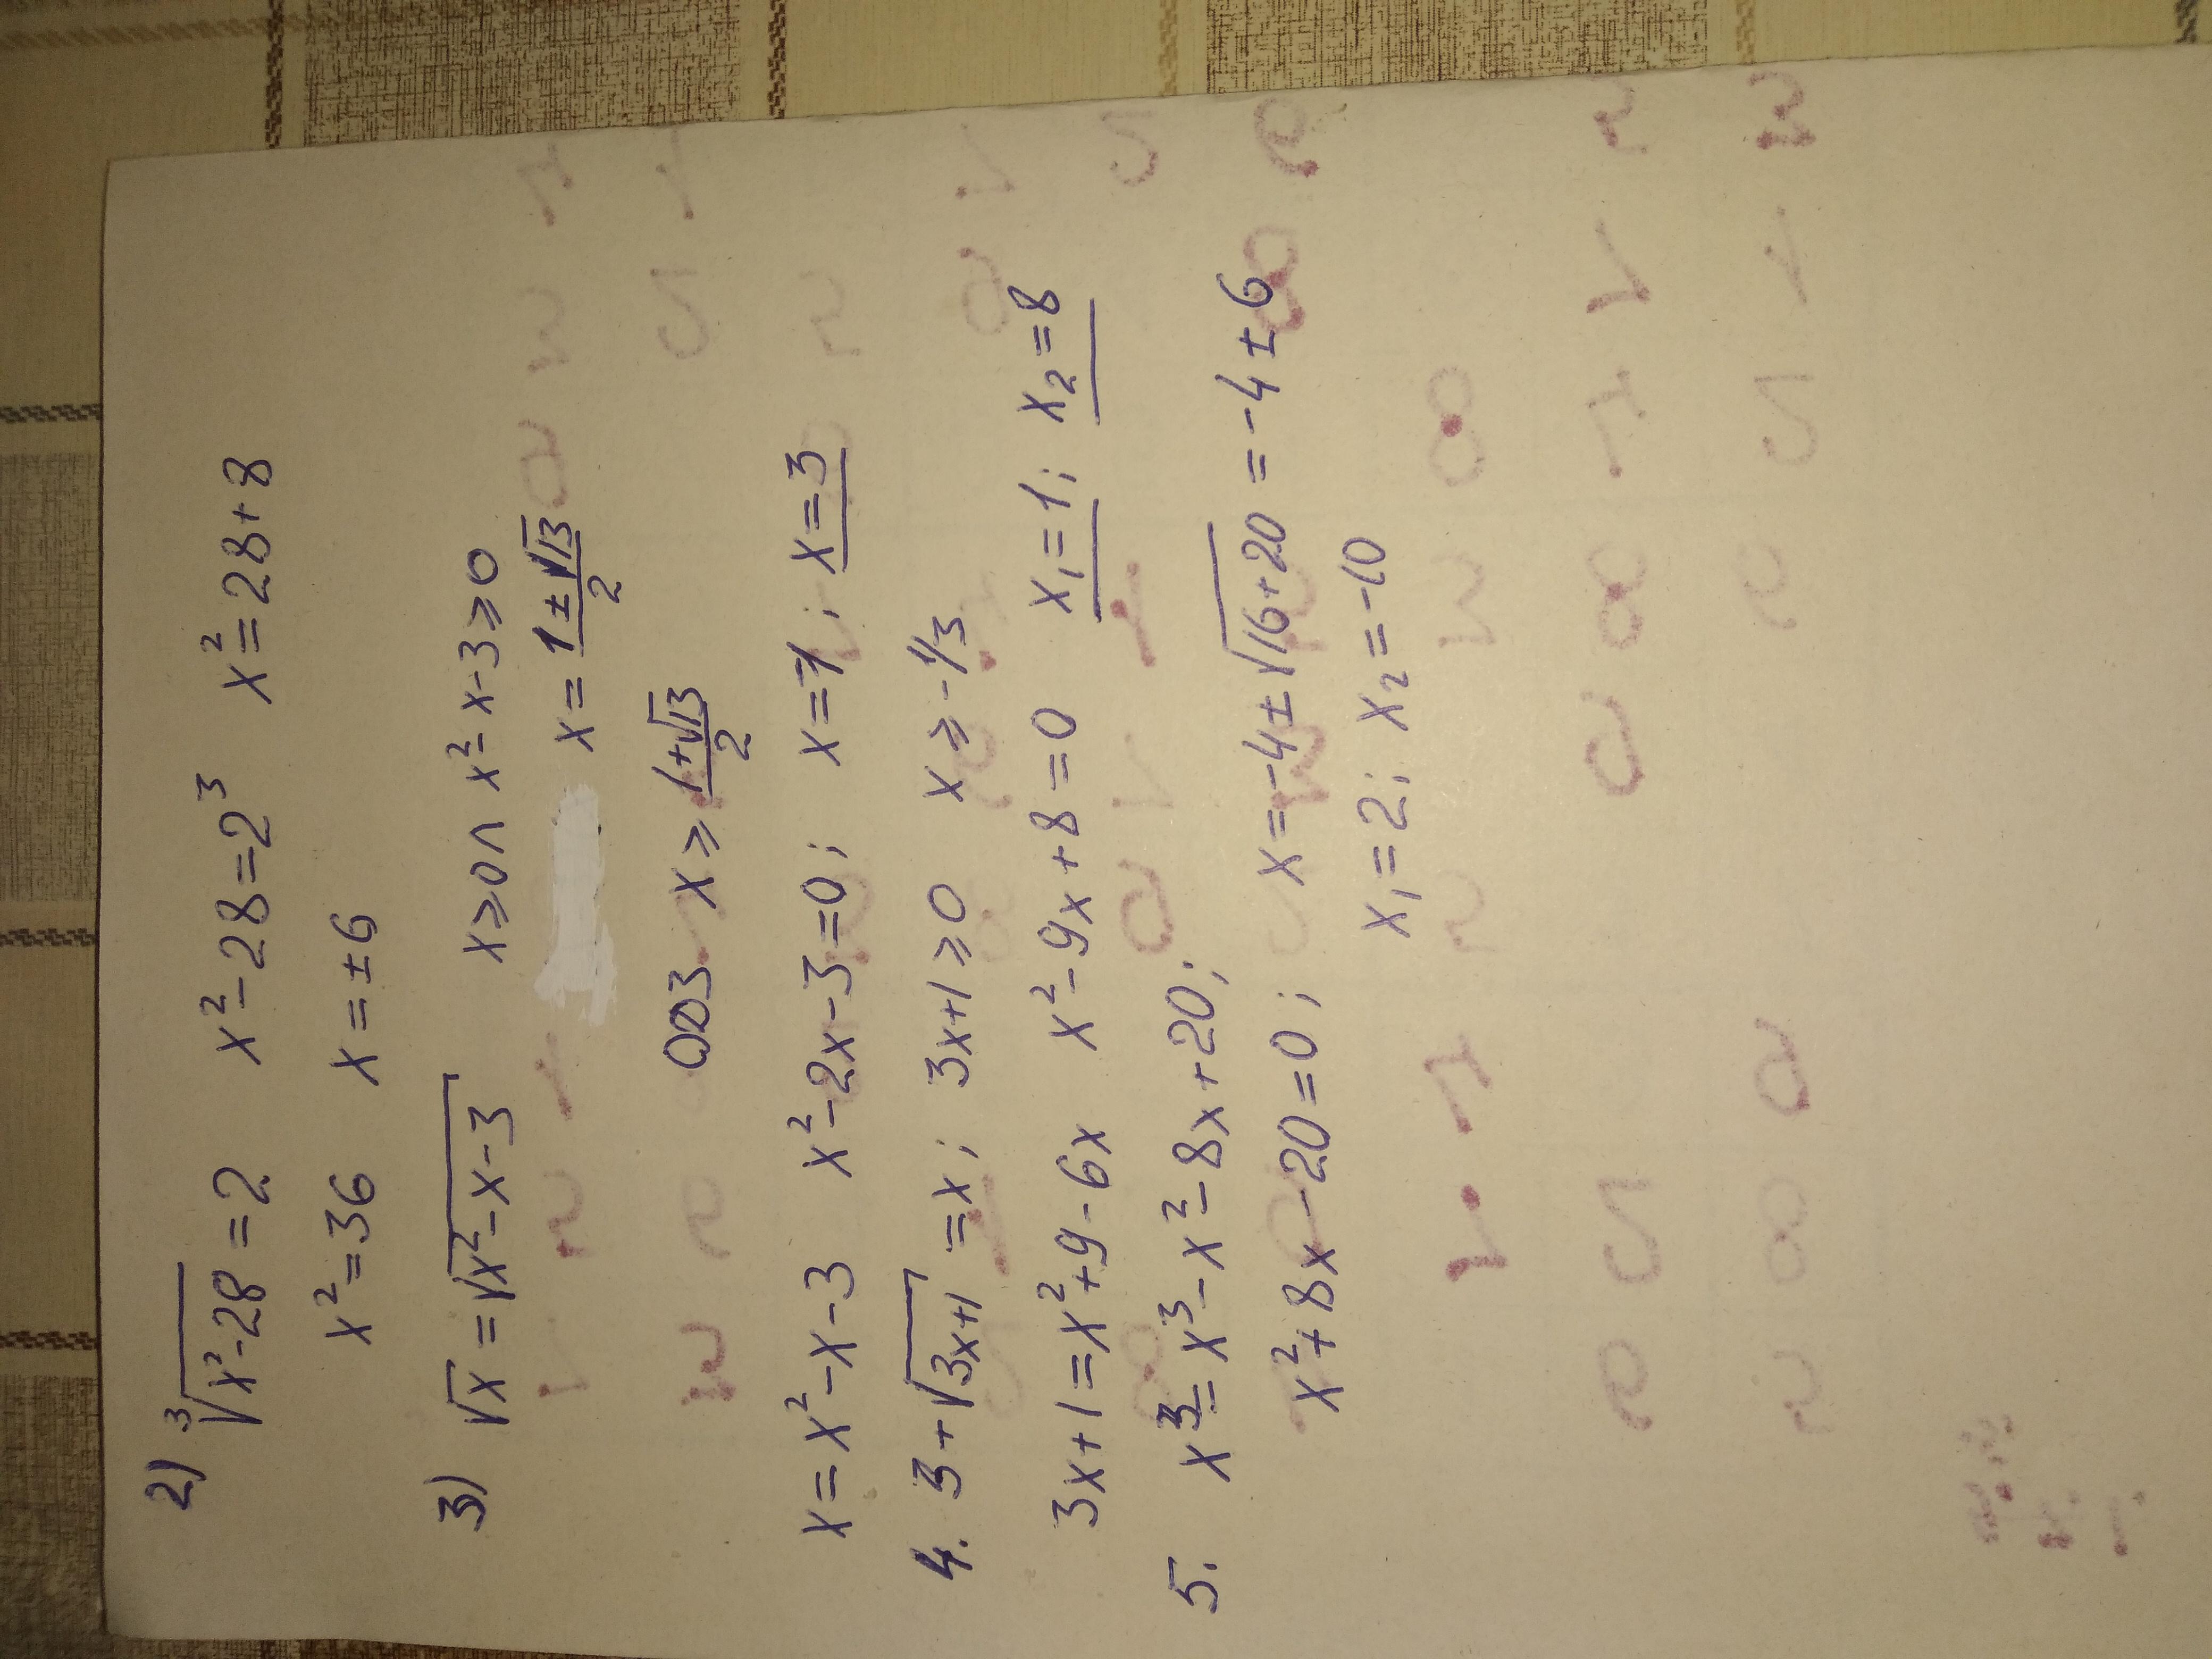 2) ∛(x²-28) = 2 x²-28=2³ x²=28+8
x²=36 x=±6
3) √x = √(x²-x-3) x⩾0 ∩ x²-x-3⩾0
x = (1±√13)/2
ОДЗ x ⩾ (1+√13)/2
x = x²-x-3 x²-2x-3=0; x=-1; x=3
4. 3+√(3x+1) = x; 3x+1⩾0 x⩾-1/3
3x+1=x²+9-6x x²-9x+8=0 x₁=1; x₂=8
5. x³=x³-x²-8x+20;
x²+8x-20=0; x=-4±√(16+20) = -4±6
x₁=2; x₂=-10